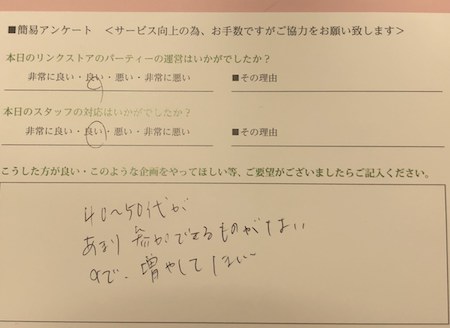 ■簡易アンケート ＜サービス向上の為、お手数ですがご協力をお願い致します＞
本日のリンクストアのパーティーの運営はいかがでしたか？
非常に良い・良い・悪い・非常に悪い ■その理由
本日のスタッフの対応はいかがでしたか？
非常に良い・良い・悪い・非常に悪い ■その理由
こうした方が良い・このような企画をやってほしい等、ご要望がございましたらご記入ください。
40〜50代が
あまり参加できるものがない
ので、増やしてほしい